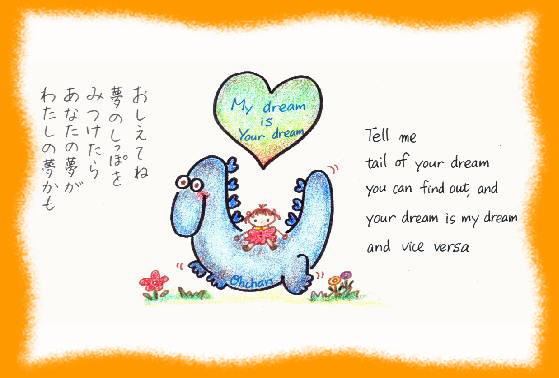 おしえてね
夢のしっぽを
みつけたら
あなたの夢が
わたしの夢かも
My dream
is
Your dream
Ohchan
Tell me
tail of your dream
you can find out, and
your dream is my dream
and vice versa